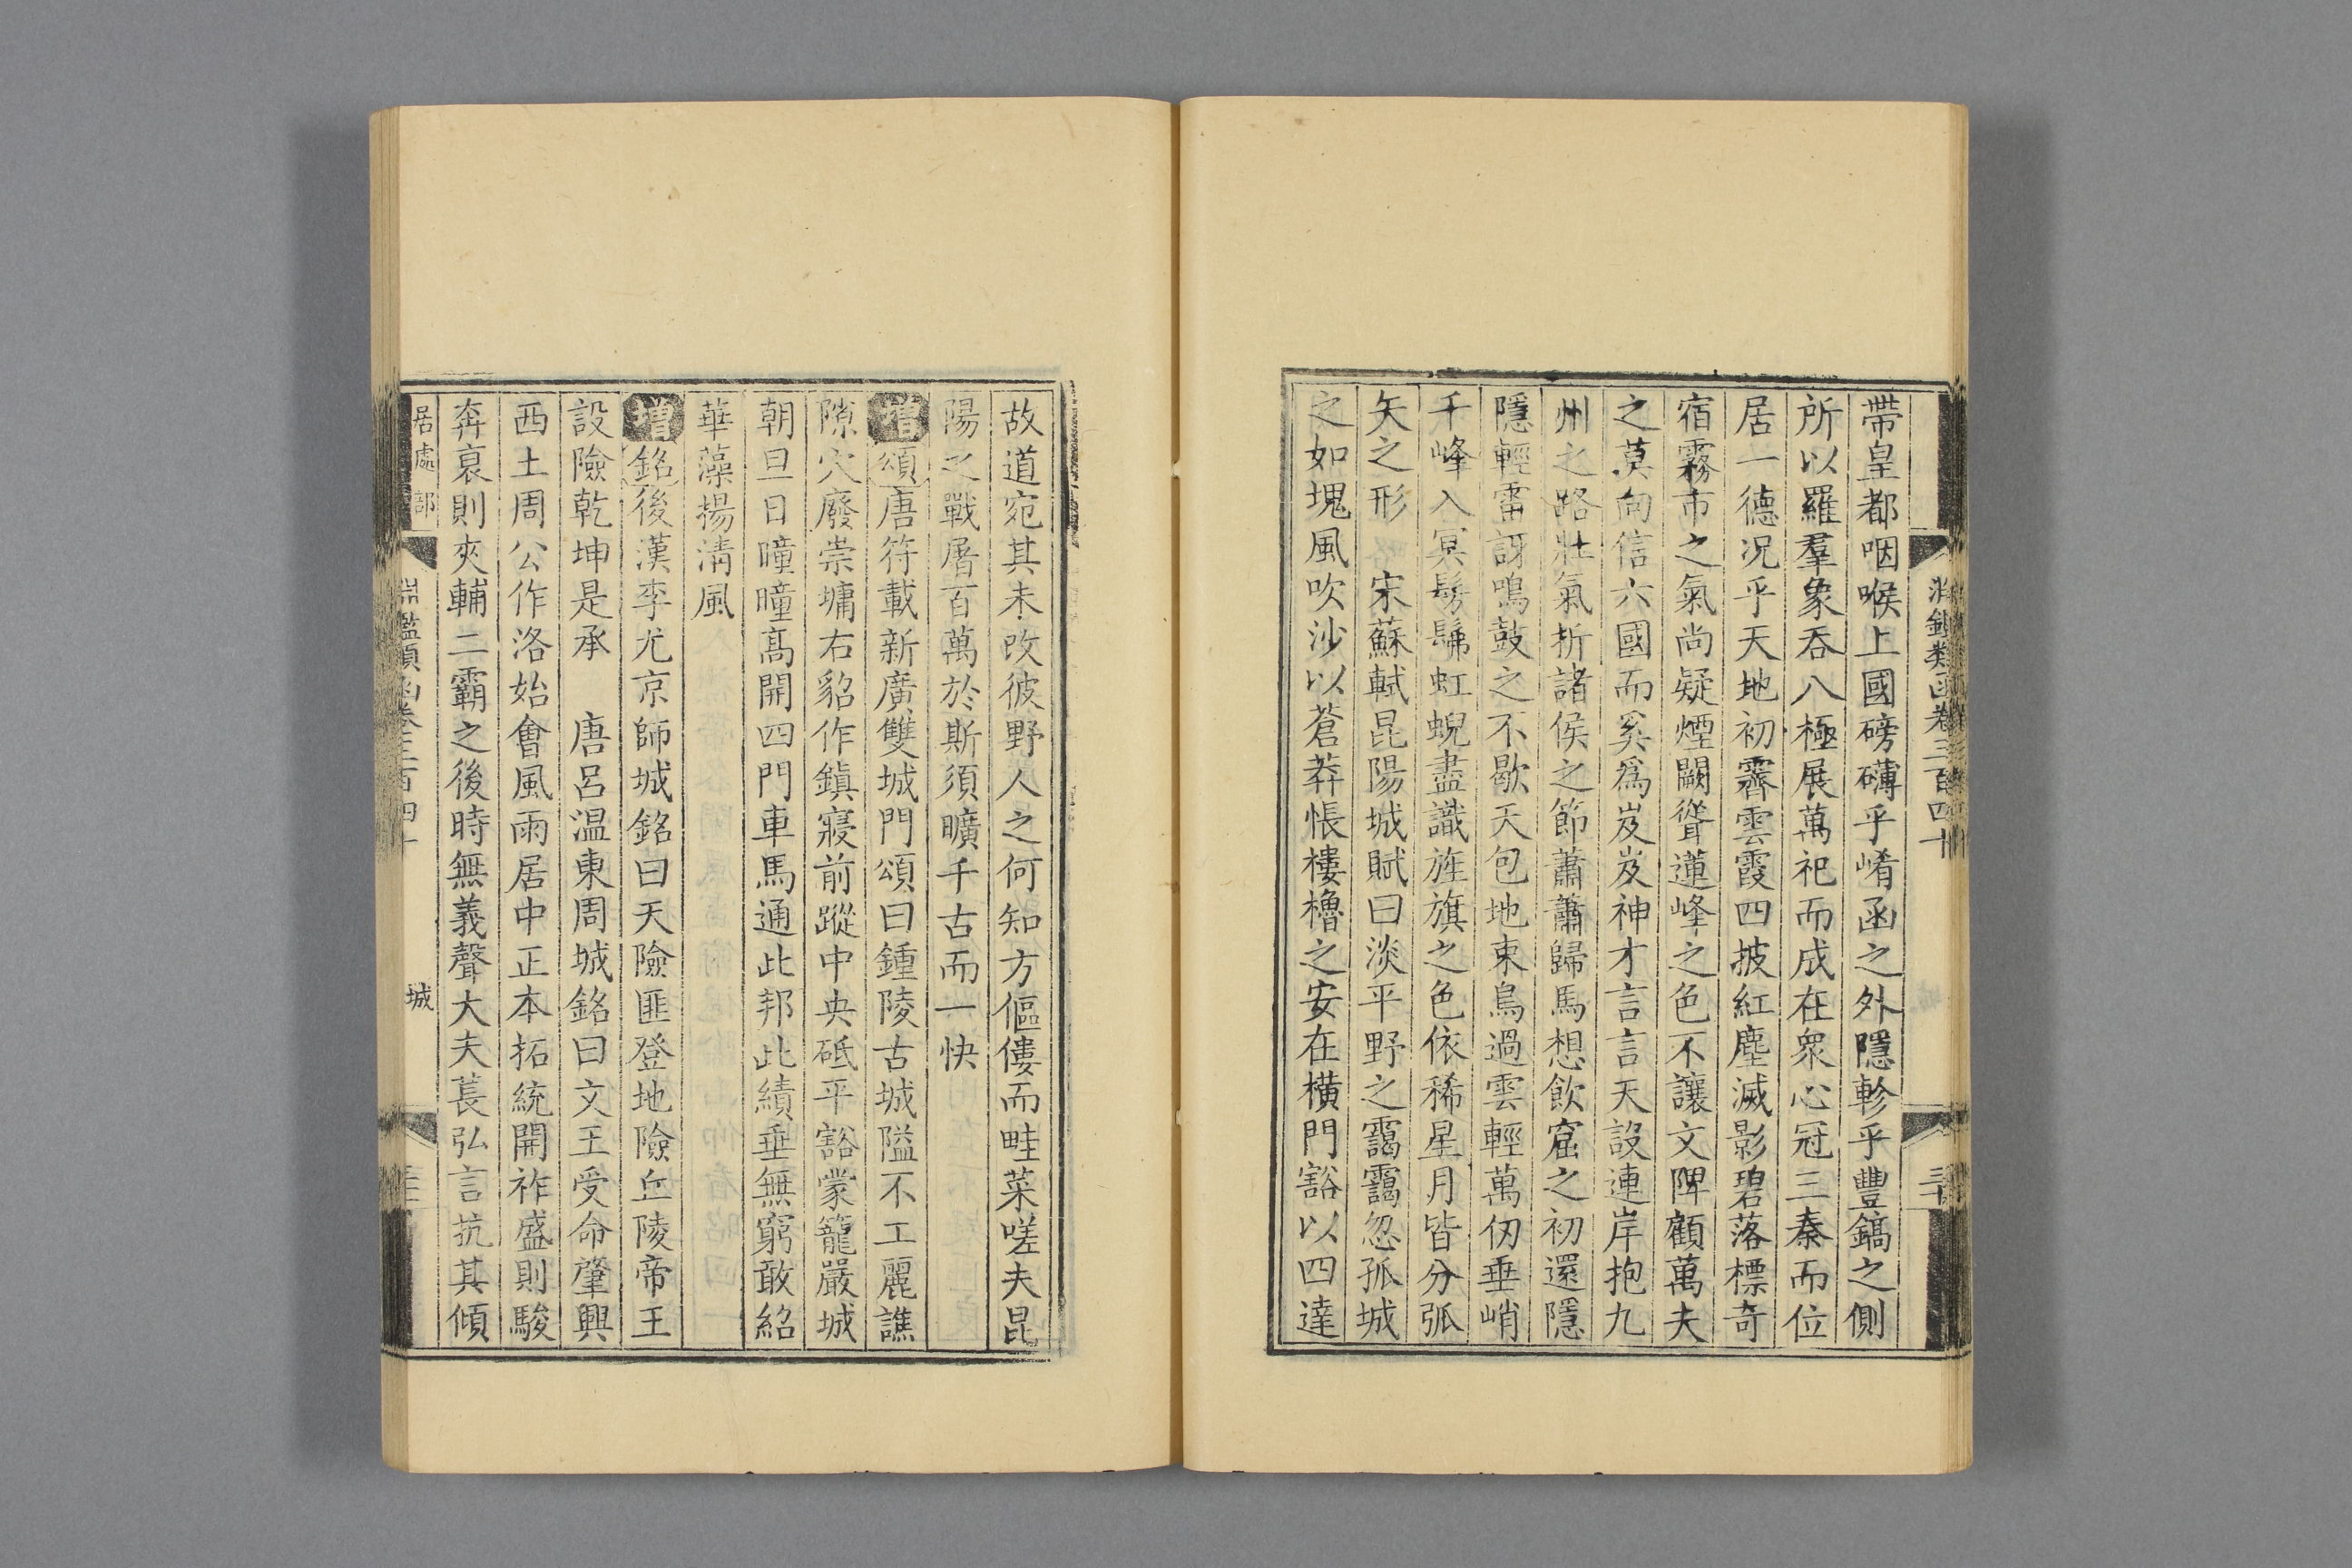 淵鑑類函卷三百四十
帶皇都咽喉上國磅礴乎崤函之外隱軫乎豐鎬之側
所以羅羣象吞八極展萬祀而成在衆心冠三秦而位
居一德况乎天地初霽雲霞四披紅塵滅影碧落標奇
宿霧市之氣尚疑煙闕聳蓮峰之色不讓文陴顧萬夫
之莫向信六國而奚爲岌岌神才言言天設連岸抱九
州之路壯氣折諸侯之節蕭蕭歸馬想飲窟之初還隱
隱輕雷訝鳴鼓之不歇天包地束鳥過雲輕萬仞垂峭
千峰入冥髣髴虹蜺盡識旌旗之色依稀星月皆分弧
矢之形　宋蘇軾昆陽城賦曰淡平野之靄靄忽孤城
之如塊風吹沙以蒼莽悵樓櫓之安在橫門豁以四達
故道宛其未改彼野人之何知方傴僂而畦菜嗟夫昆
陽之戰屠百萬於斯須曠千古而一快
增頌唐符載新廣雙城門頌曰鍾陵古城隘不工麗譙
隙穴廢崇墉右貂作鎮寢前蹤中央砥平豁蒙籠嚴城
朝旦日曈曈高開四門車馬通此邦此績垂無窮敢紹
華藻揚淸風
增銘後漢李尤京師城銘曰天險匪登地險丘陵帝王
設險乾坤是承　唐呂温東周城銘曰文王受命肇興
西土周公作洛始會風雨居中正本拓統開祚盛則駿
奔衰則夾輔二霸之後時無義聲大夫萇弘言抗其傾
居處部　淵鑑類函卷三百四十　城